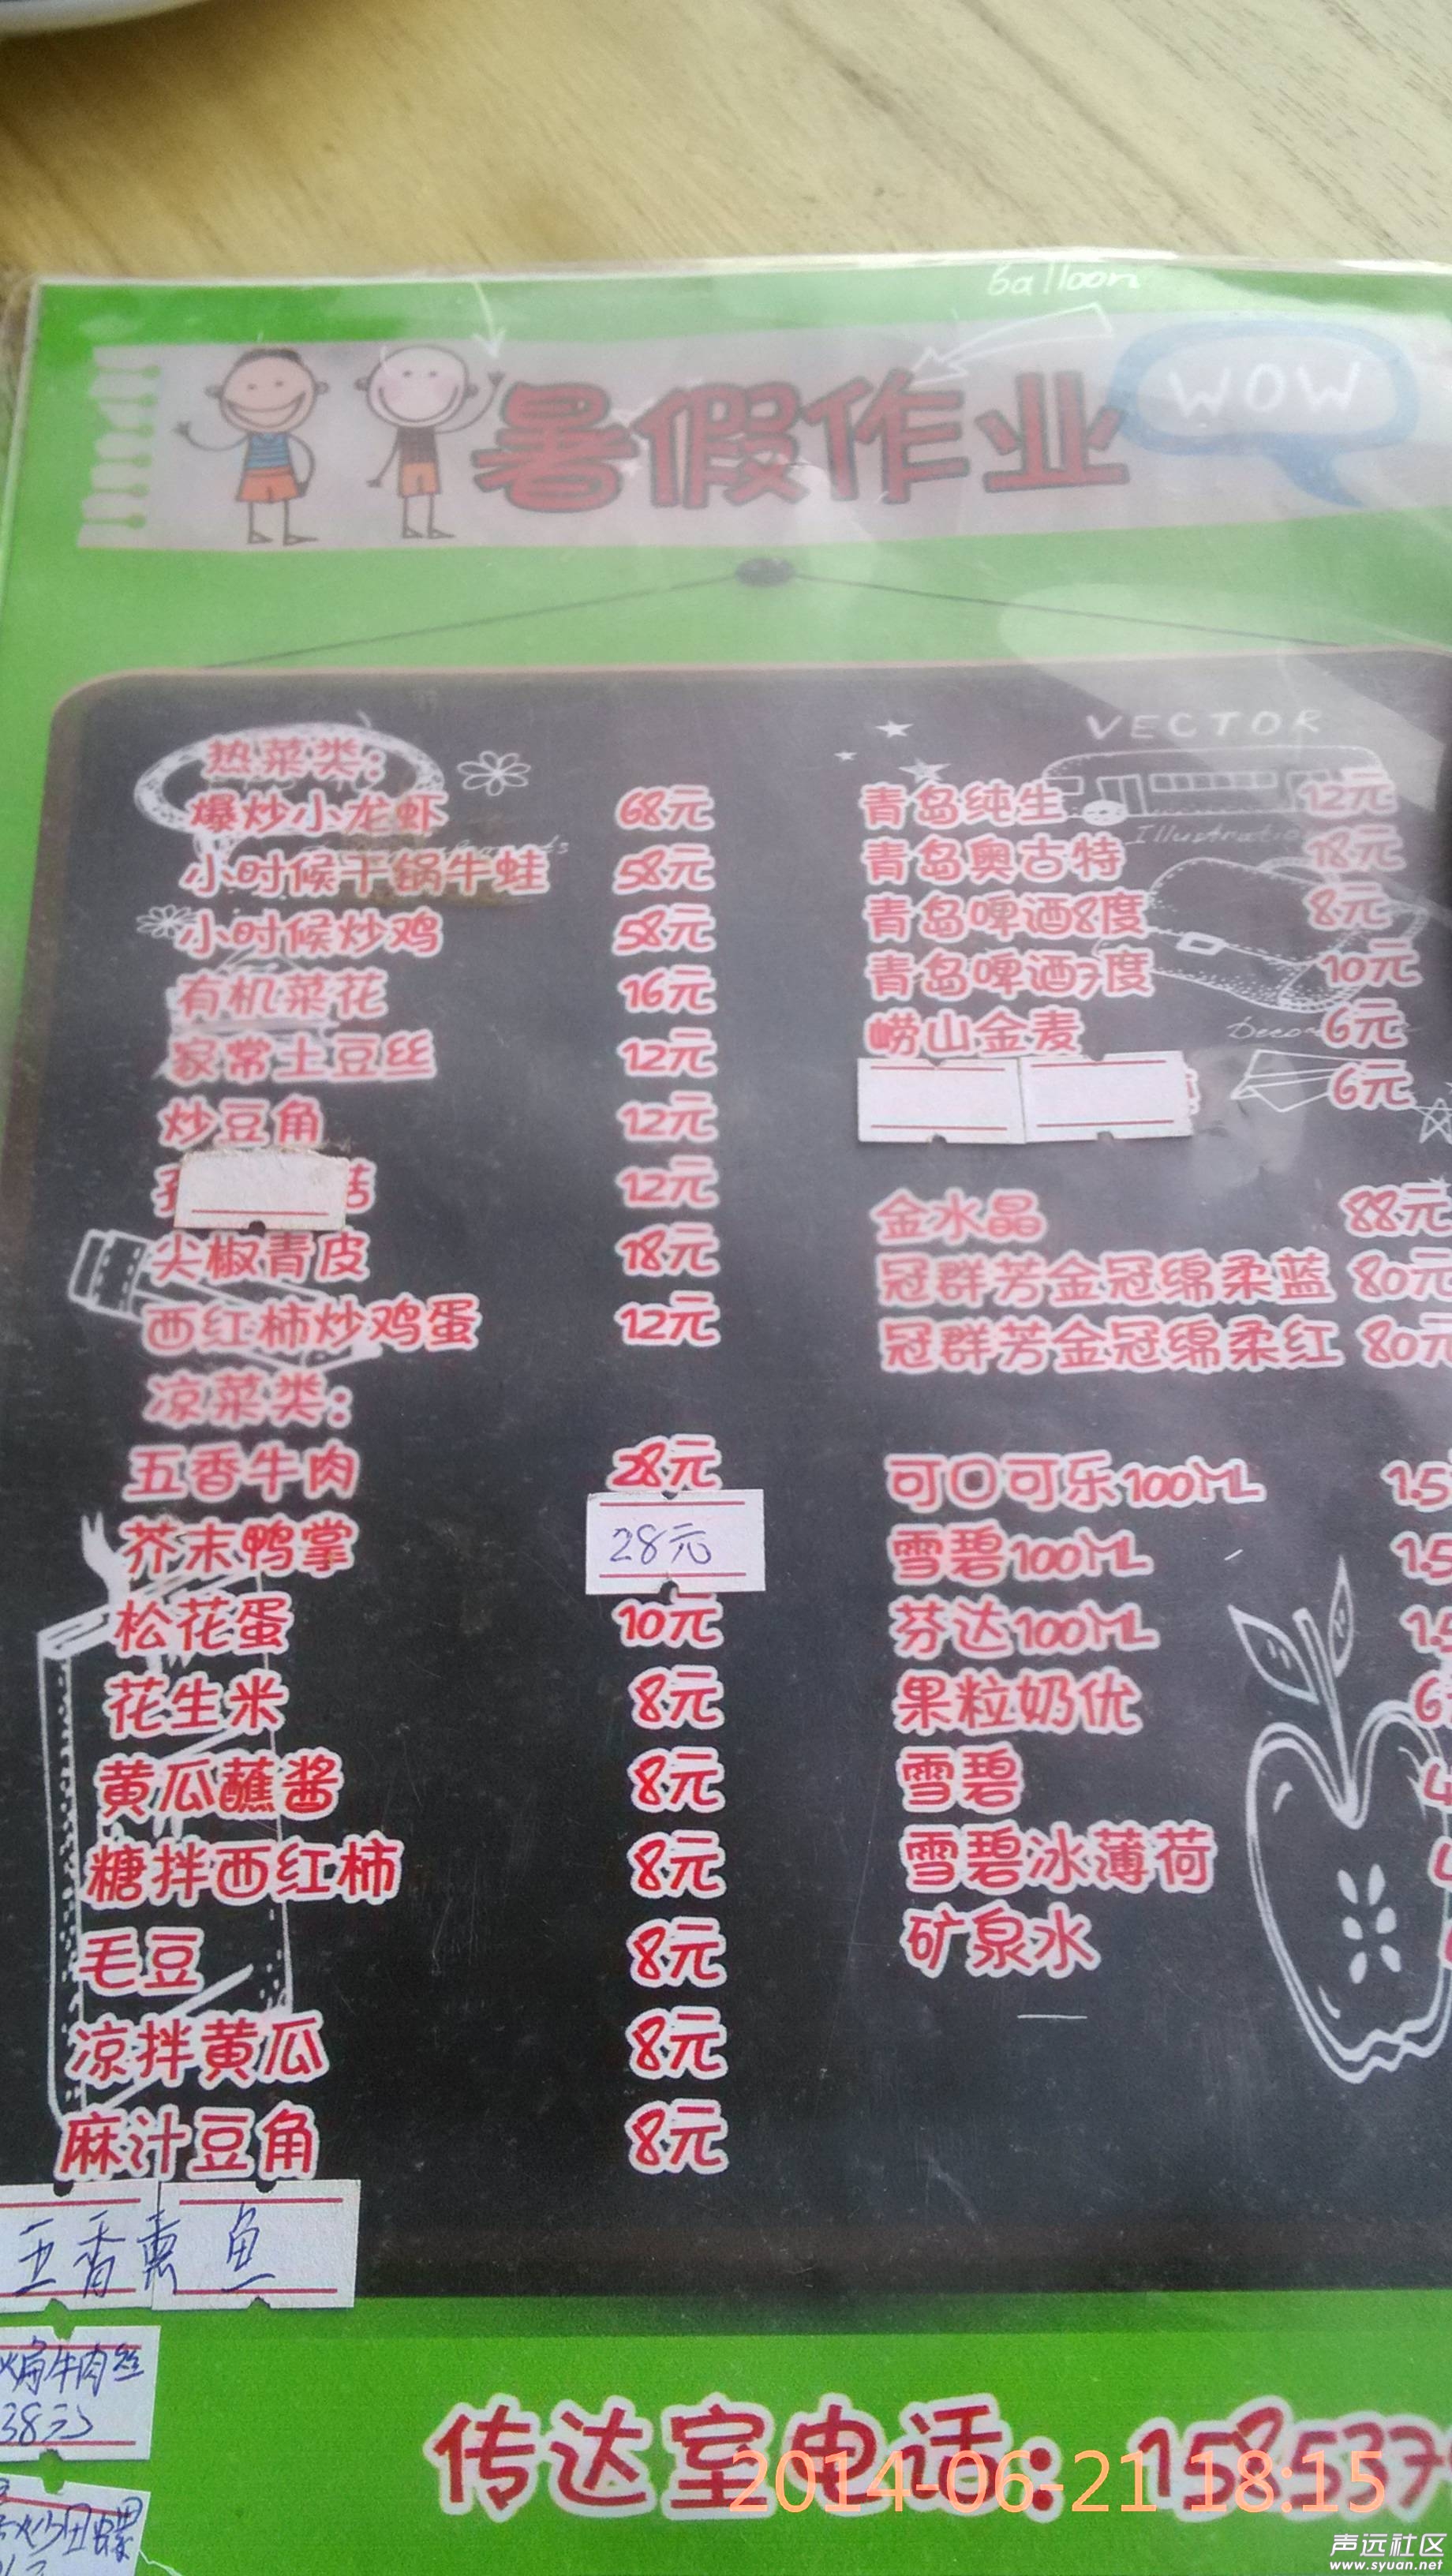 balloon
暑假作业
WOW
VECTOR
热菜类:
爆炒小龙虾 68元
小时候干锅牛蛙 58元
小时候炒鸡 58元
有机菜花 16元
家常土豆丝 12元
炒豆角 12元
12元
尖椒青皮 18元
西红柿炒鸡蛋 12元
凉菜类:
五香牛肉 28元
芥末鸭掌 28元
松花蛋 10元
花生米 8元
黄瓜蘸酱 8元
糖拌西红柿 8元
毛豆 8元
凉拌黄瓜 8元
麻汁豆角 8元
五香熏鱼
牛肉丝
38元
炒田螺
青岛纯生 12元
Illustratio
青岛奥古特 18元
青岛啤酒8度 8元
青岛啤酒7度 10元
崂山金麦 6元
6元
金水晶 88元
冠群芳金冠绵柔蓝 80元
冠群芳金冠绵柔红 80元
可口可乐100ML 1.5
雪碧100ML 1.5
芬达100ML 1.5
果粒奶优 6
雪碧 4
雪碧冰薄荷
矿泉水
传达室电话: 158537
2014-06-21 18:15
声远社区
www.syuan.net